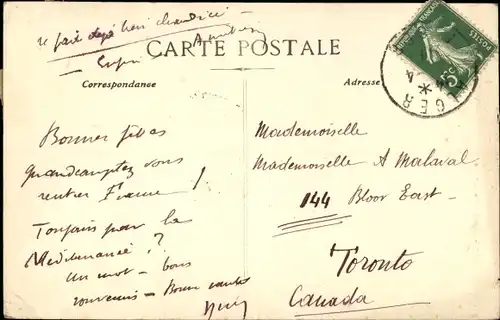 il fait déjà bien chaud ici
CARTE POSTALE
Correspondance
Adresse
RÉPUBLIQUE FRANÇAISE
POSTES
5c
Bonnes fêtes
Quand comptez vous
rentrer France !
Toujours par la
Méditerranée ?
Un mot – bons
souvenirs – Bonne santé
Mademoiselle
Mademoiselle A Malaval
144 Bloor East
Toronto
Canada